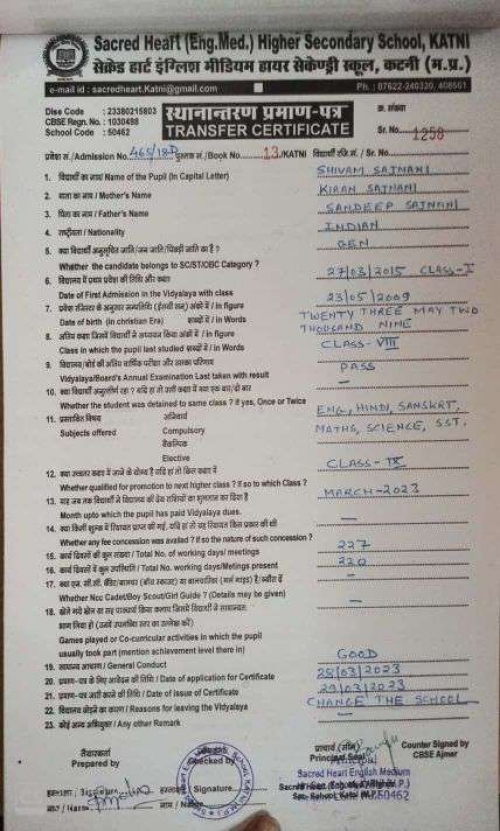 Sacred Heart (Eng.Med.) Higher Secondary School, KATNI
सेक्रेड हार्ट इंग्लिश मीडियम हायर सेकेण्ड्री स्कूल, कटनी (म.प्र.)
e-mail id : sacredheart.Katni@gmail.com Ph. : 07622-240320, 408561
Dise Code : 23380215803 स्थानान्तरण प्रमाण-पत्र क्र. संख्या
CBSE Regn. No. : 1030498
School Code : 50462 TRANSFER CERTIFICATE Sr. No. 1258
प्रवेश सं./Admission No. 465/18D पुस्तक सं./Book No. 13/KATNI विद्यार्थी रजि.नं. / Sr. No.
1. विद्यार्थी का नाम/ Name of the Pupil (In Capital Letter) SHIVAM SAJNANI
2. माता का नाम / Mother's Name KIRAN SAJNANI
3. पिता का नाम / Father's Name SANDEEP SAJNANI
4. राष्ट्रीयता / Nationality INDIAN
5. क्या विद्यार्थी अनुसूचित जाति/जन जाति/पिछड़ी जाति का है ? GEN
Whether the candidate belongs to SC/ST/OBC Category ?
6. विद्यालय में प्रथम प्रवेश की तिथि और कक्षा 27/03/2015 CLASS-I
Date of First Admission in the Vidyalaya with class
7. प्रवेश रजिस्टर के अनुसार जन्मतिथि (ईसवी सन्) अंकों में / In figure 23/05/2009
Date of birth (In christian Era) शब्दों में / In Words TWENTY THREE MAY TWO THOUSAND NINE
8. अंतिम कक्षा जिसमें विद्यार्थी ने अध्ययन किया अंकों में / In figure CLASS-VIII
Class in which the pupil last studied शब्दों में / In Words
9. विद्यालय/बोर्ड की अंतिम वार्षिक परीक्षा और उसका परिणाम PASS
Vidyalaya/Board's Annual Examination Last taken with result
10. क्या विद्यार्थी अनुत्तीर्ण रहा ? यदि हां तो उसी कक्षा में क्या एक बार/दो बार –
Whether the student was detained to same class ? If yes, Once or Twice
11. प्रस्तावित विषय अनिवार्य ENG, HINDI, SANSKRT,
Subjects offered Compulsory MATHS, SCIENCE, SST.
वैकल्पिक
Elective
12. क्या उच्चतर कक्षा में जाने के योग्य है यदि हां तो किस कक्षा में CLASS-IX
Whether qualified for promotion to next higher class ? If so to which Class ?
13. माह जब तक विद्यार्थी ने विद्यालय की देय राशियों का भुगतान कर दिया है MARCH-2023
Month upto which the pupil has paid Vidyalaya dues.
14. क्या किसी शुल्क में रियायत प्राप्त की गई, यदि हां तो वह रियायत किस प्रकार की थी –
Whether any fee concession was availed ? If so the nature of such concession ?
15. कार्य दिवसों की कुल संख्या / Total No. of working days/ meetings 227
16. कार्य दिवसों में कुल उपस्थिति / Total No. working days/Metings present 220
17. क्या एन. सी.सी. कैडेट/बालचर (बॉय स्काउट) या बालचारिका (गर्ल गाइड) है/ब्यौरा दें –
Whether Ncc Cadet/Boy Scout/Girl Guide ? (Details may be given)
18. खेले गये खेल या सह पाठ्यचर्या क्रिया कलाप जिसमें विद्यार्थी ने सामान्यतः –
भाग लिया हो (उनमें उपलब्धि स्तर का उल्लेख करें)
Games played or Co-curricular activities in which the pupil
usually took part (mention achievement level there in)
19. सामान्य आचरण / General Conduct GOOD
20. प्रमाण-पत्र के लिए आवेदन की तिथि / Date of application for Certificate 28/03/2023
21. प्रमाण-पत्र जारी करने की तिथि / Date of issue of Certificate 29/03/2023
22. विद्यालय छोड़ने का कारण / Reasons for leaving the Vidyalaya CHANGE THE SCHOOL
23. कोई अन्य अभियुक्त / Any other Remark –
तैयारकर्ता प्राचार्य (सील) Counter Signed by
Prepared by Checked by Principal Seal CBSE Ajmer
Principal
Sacred Heart English Medium
Signature